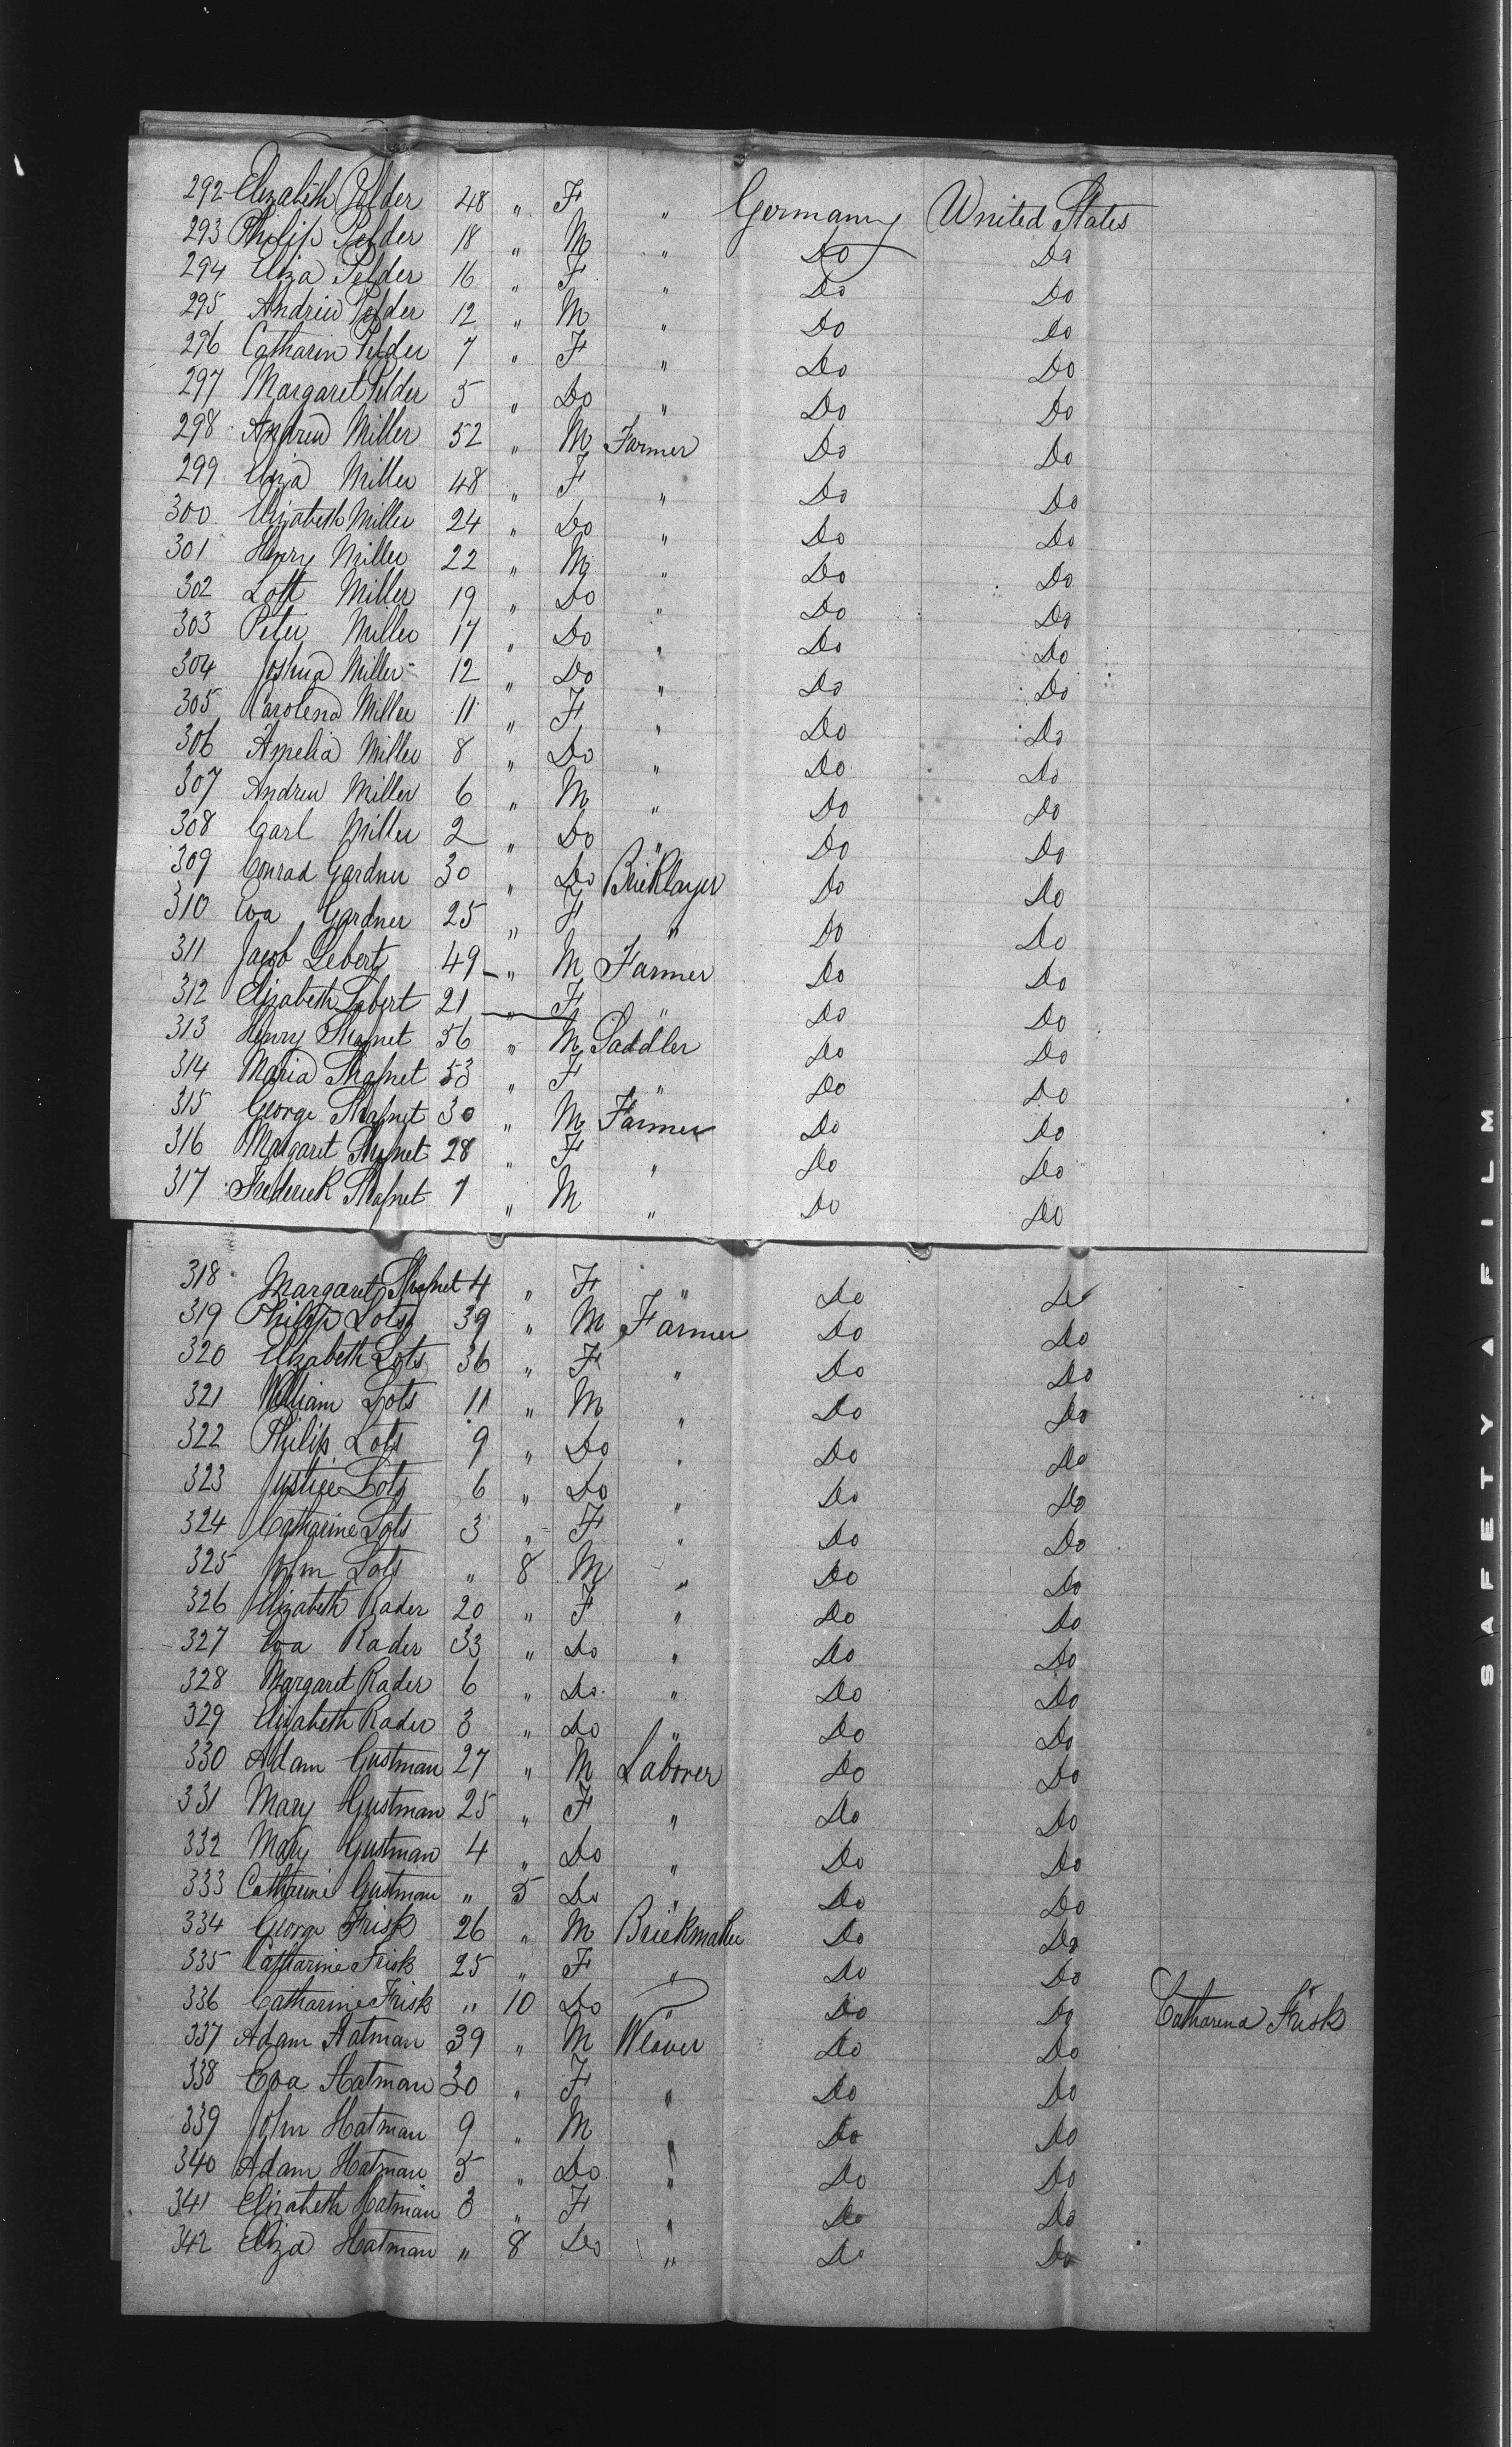 292 Elizabeth Pelder 48 " F " Germany United States
293 Philip Pelder 18 " M " Do Do
294 Eliza Pelder 16 " F " Do Do
295 Andrew Pelder 12 " M " Do Do
296 Catharin Pelder 7 " F " Do Do
297 Margaret Pelder 5 " Do " Do Do
298 Andrew Miller 52 " M Farmer Do Do
299 Eliza Miller 48 " F " Do Do
300 Elizabeth Miller 24 " Do " Do Do
301 Henry Miller 22 " M " Do Do
302 Lott Miller 19 " Do " Do Do
303 Peter Miller 17 " Do " Do Do
304 Joshua Miller 12 " Do " Do Do
305 Carolena Miller 11 " F " Do Do
306 Amelia Miller 8 " Do " Do Do
307 Andrew Miller 6 " M " Do Do
308 Carl Miller 2 " Do " Do Do
309 Conrad Gardner 30 " Do Bricklayer Do Do
310 Eva Gardner 25 " F " Do Do
311 Jacob Lebert 49 " M Farmer Do Do
312 Elizabeth Lebert 21 " F " Do Do
313 Henry 56 " M Saddler Do Do
314 Maria 53 " F " Do Do
315 George 30 " M Farmer Do Do
316 Margaret 28 " F " Do Do
317 Frederick 7 " M " Do Do
318 Margaret 4 " F " Do Do
319 Philip Lots 39 " M Farmer Do Do
320 Elizabeth Lots 36 " F " Do Do
321 William Lots 11 " M " Do Do
322 Philip Lots 9 " Do " Do Do
323 Justice Lots 6 " Do " Do Do
324 Catharine Lots 3 " F " Do Do
325 John Lots " 8 M " Do Do
326 Elizabeth Rader 20 " F " Do Do
327 Eva Rader 33 " Do " Do Do
328 Margaret Rader 6 " Do " Do Do
329 Elizabeth Rader 3 " Do " Do Do
330 Adam Gustman 27 " M Laborer Do Do
331 Mary Gustman 25 " F " Do Do
332 Mary Gustman 4 " Do " Do Do
333 Catharine Gustman " 5 Do " Do Do
334 George Frisk 26 " M Brickmaker Do Do
335 Catharine Frisk 25 " F " Do Do
336 Catharine Frisk " 10 Do " Do Do Catharina Frisk
337 Adam Hatman 39 " M Weaver Do Do
338 Eva Hatman 30 " F " Do Do
339 John Hatman 9 " M " Do Do
340 Adam Hatman 5 " Do " Do Do
341 Elizabeth Hatman 3 " F " Do Do
342 Eliza Hatman " 8 Do " Do Do
SAFETY A FILM